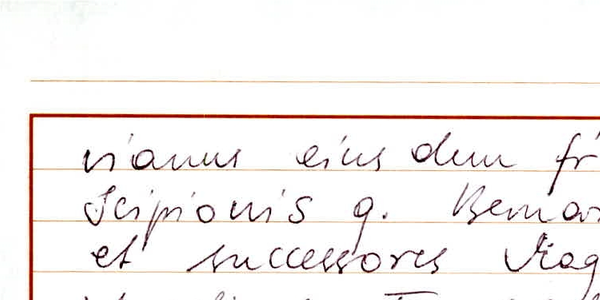 vianus eius dem fr
Scipionis q. Bernar
et successores